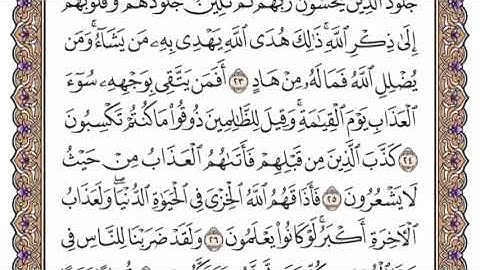 جُلُودُ ٱلَّذِينَ يَخْشَوْنَ رَبَّهُمْ ثُمَّ تَلِينُ جُلُودُهُمْ وَقُلُوبُهُمْ
إِلَىٰ ذِكْرِ ٱللَّهِ ۚ ذَٰلِكَ هُدَى ٱللَّهِ يَهْدِى بِهِۦ مَن يَشَآءُ ۚ وَمَن
يُضْلِلِ ٱللَّهُ فَمَا لَهُۥ مِنْ هَادٍ ٢٣ أَفَمَن يَتَّقِى بِوَجْهِهِۦ سُوٓءَ
ٱلْعَذَابِ يَوْمَ ٱلْقِيَٰمَةِ ۚ وَقِيلَ لِلظَّٰلِمِينَ ذُوقُوا۟ مَا كُنتُمْ تَكْسِبُونَ
٢٤ كَذَّبَ ٱلَّذِينَ مِن قَبْلِهِمْ فَأَتَىٰهُمُ ٱلْعَذَابُ مِنْ حَيْثُ
لَا يَشْعُرُونَ ٢٥ فَأَذَاقَهُمُ ٱللَّهُ ٱلْخِزْىَ فِى ٱلْحَيَوٰةِ ٱلدُّنْيَا ۖ وَلَعَذَابُ
ٱلْـَٔاخِرَةِ أَكْبَرُ ۚ لَوْ كَانُوا۟ يَعْلَمُونَ ٢٦ وَلَقَدْ ضَرَبْنَا لِلنَّاسِ فِى